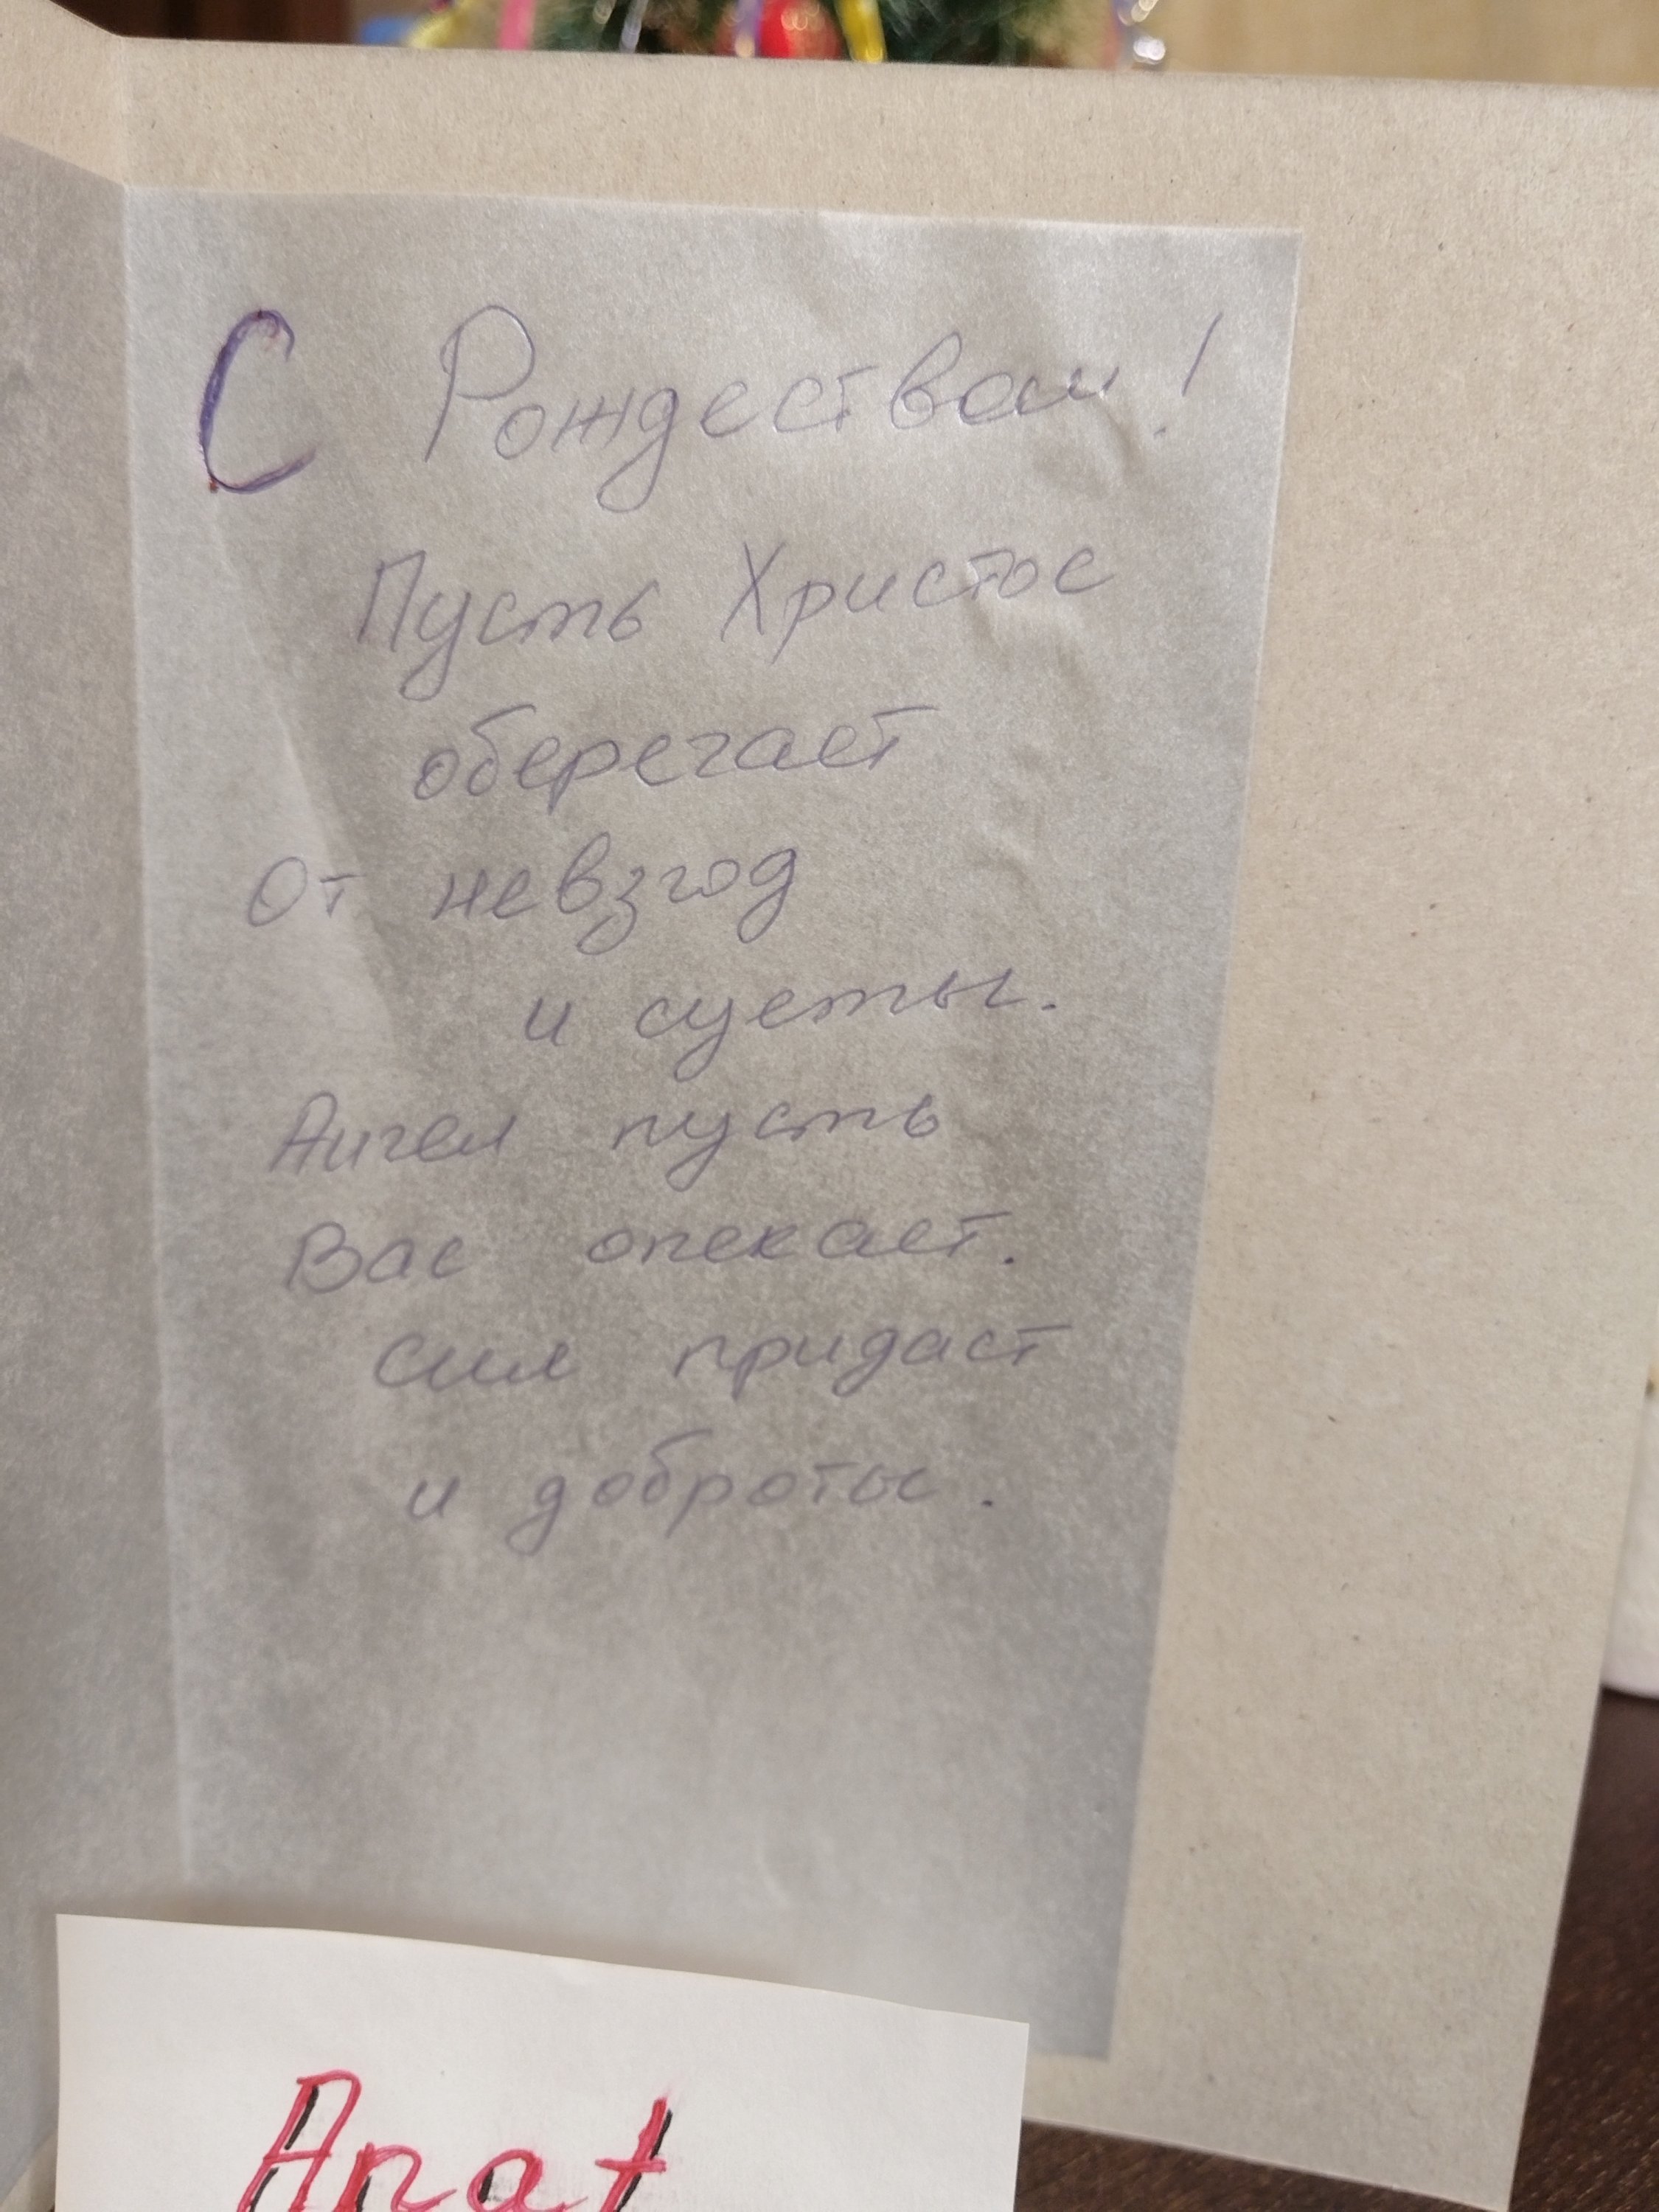 С Рождеством!
Пусть Христос
оберегает
От невзгод
и суеты.
Ангел пусть
Вас опекает.
Сил придаст
и доброты.
Anat